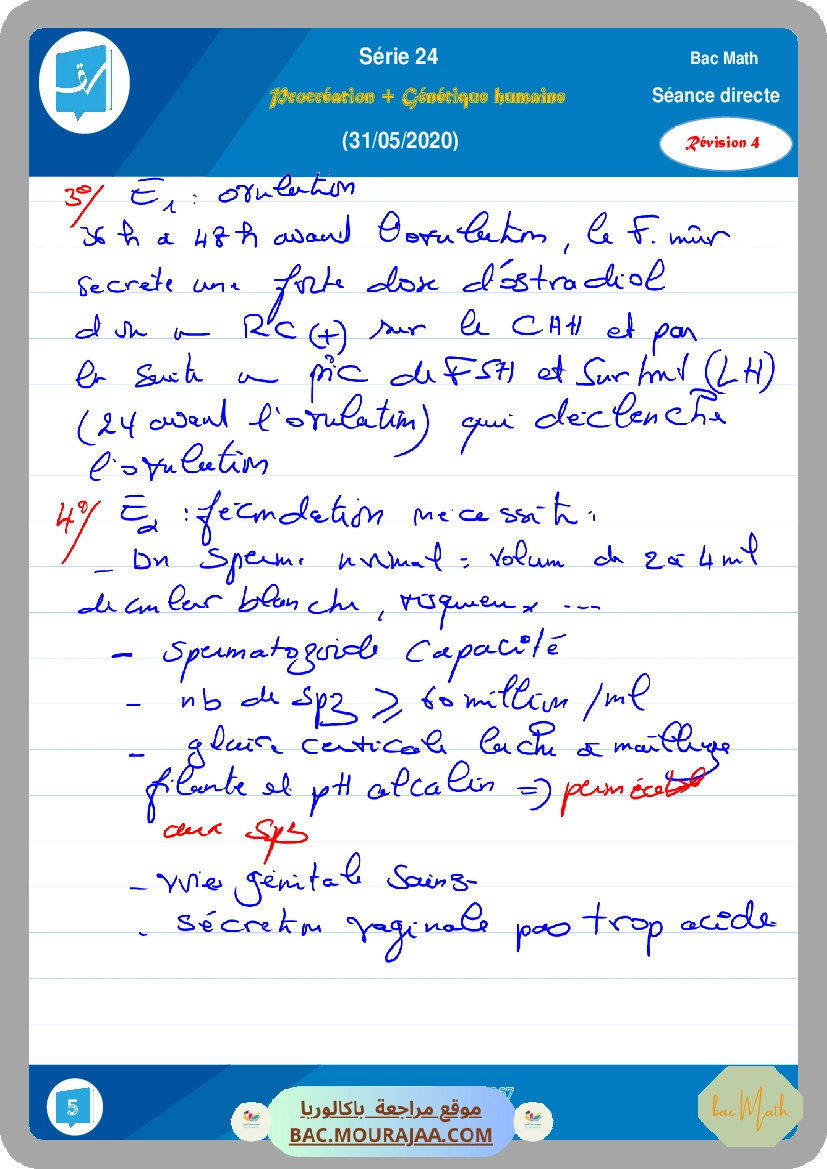 Série 24
Bac Math
Procréation + Génétique humaine
Séance directe
(31/05/2020)
Révision 4
3°/ E1 : ovulation
36 h à 48 h avant l'ovulation, le F. mûr
secrète une forte dose d'œstradiol
d'où un RC (+) sur le CHH et par
la suite un pic de FSH et surtout (LH)
(24 avant l'ovulation) qui déclenche
l'ovulation
4°/ E2 : fécondation nécessite :
- Un sperme normal = volume de 2 à 4 ml
de couleur blanche, visqueux ...
- spermatozoïde capacité
- nb de spz ≥ 60 million /ml
- glaire cervicale lache à maillage
filante et pH alcalin =>
aux spz
- voie génitale
- sécrétion vaginale pas trop acide
5
موقع مراجعة باكالوريا
BAC.MOURAJAA.COM
bac Math